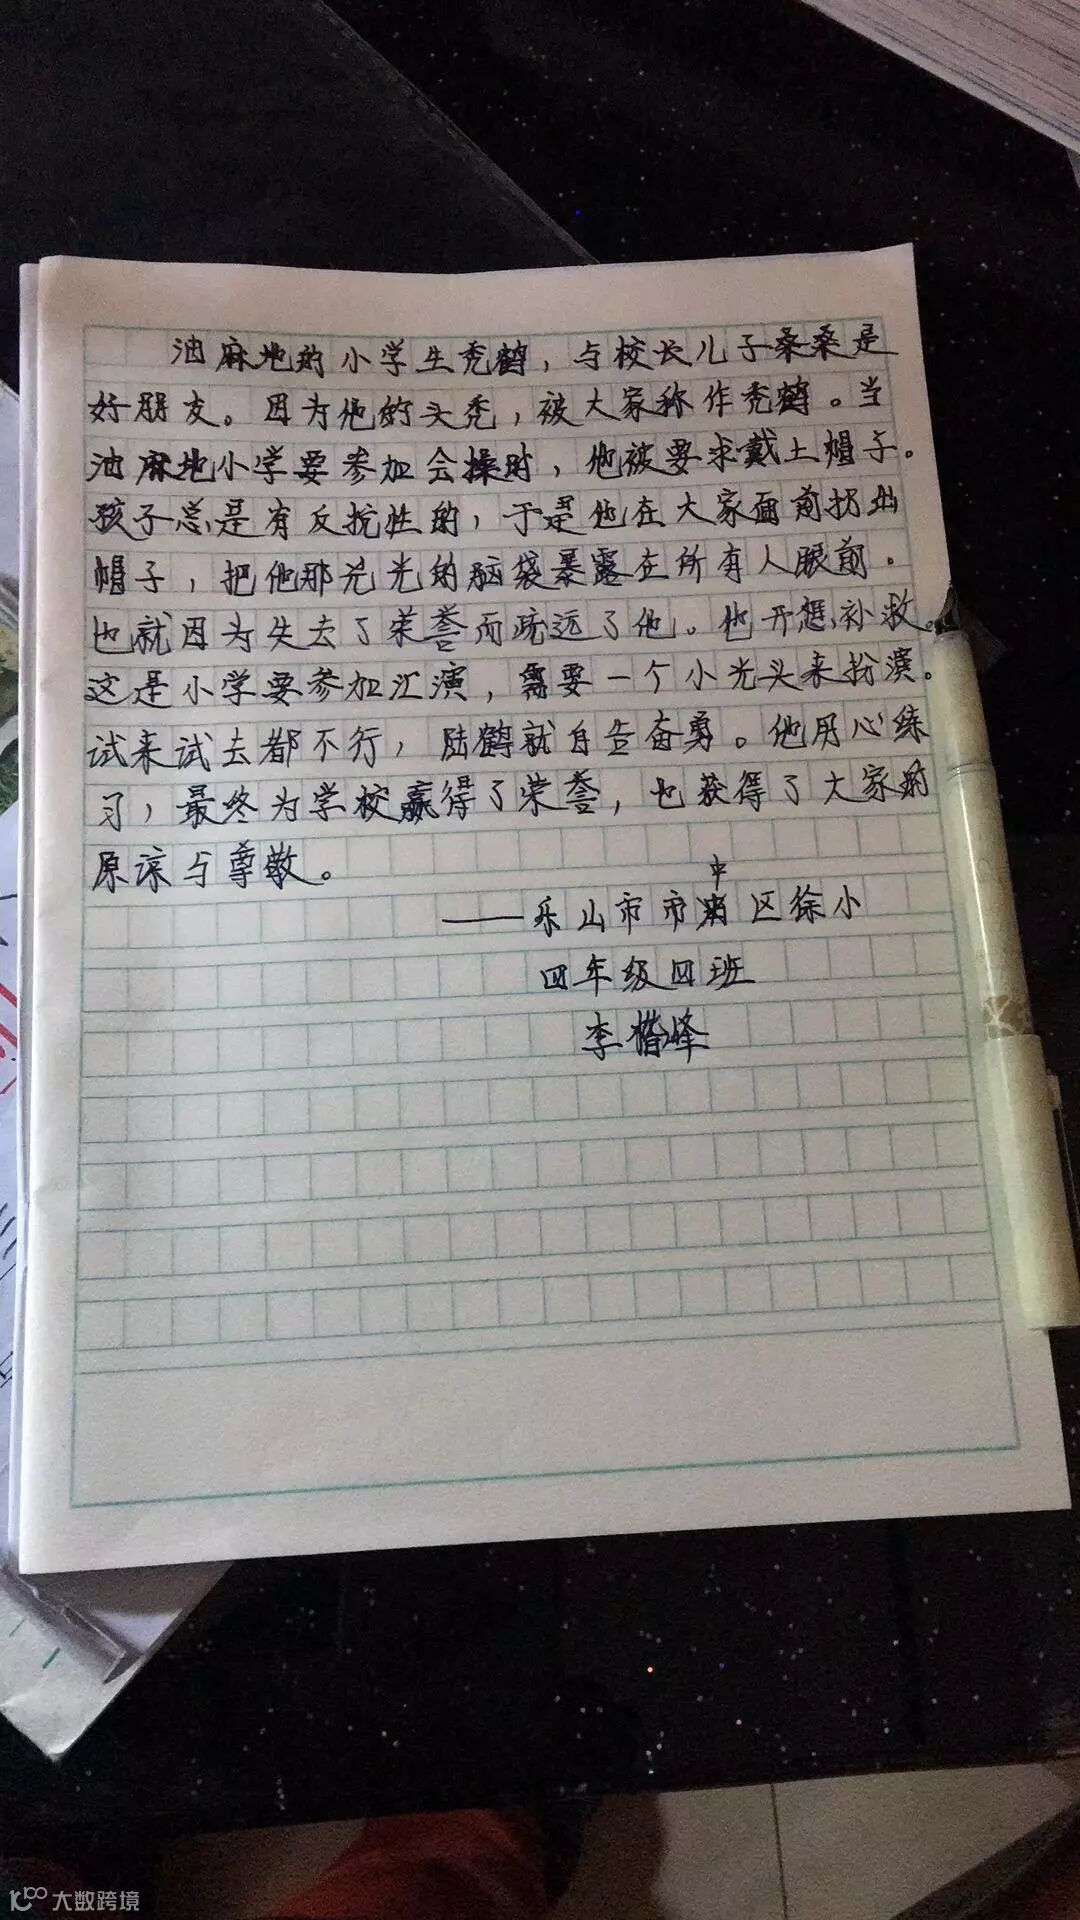 油麻地的小学生秃鹤，与校长儿子桑桑是
好朋友。因为他的头秃，被大家称作秃鹤。当
油麻地小学要参加会操时，他被要求戴上帽子。
孩子总是有反抗性的，于是他在大家面前扔出
帽子，把他那光光的脑袋暴露在所有人眼前。
也就因为失去了荣誉而疏远了他。他开想补救。
这是小学要参加汇演，需要一个小光头来扮演。
试来试去都不行，陆鹤就自告奋勇。他用心练
习，最终为学校赢得了荣誉，也获得了大家的
原谅与尊敬。
中
——乐山市市区徐小
四年级四班
李楷峰
大数跨境